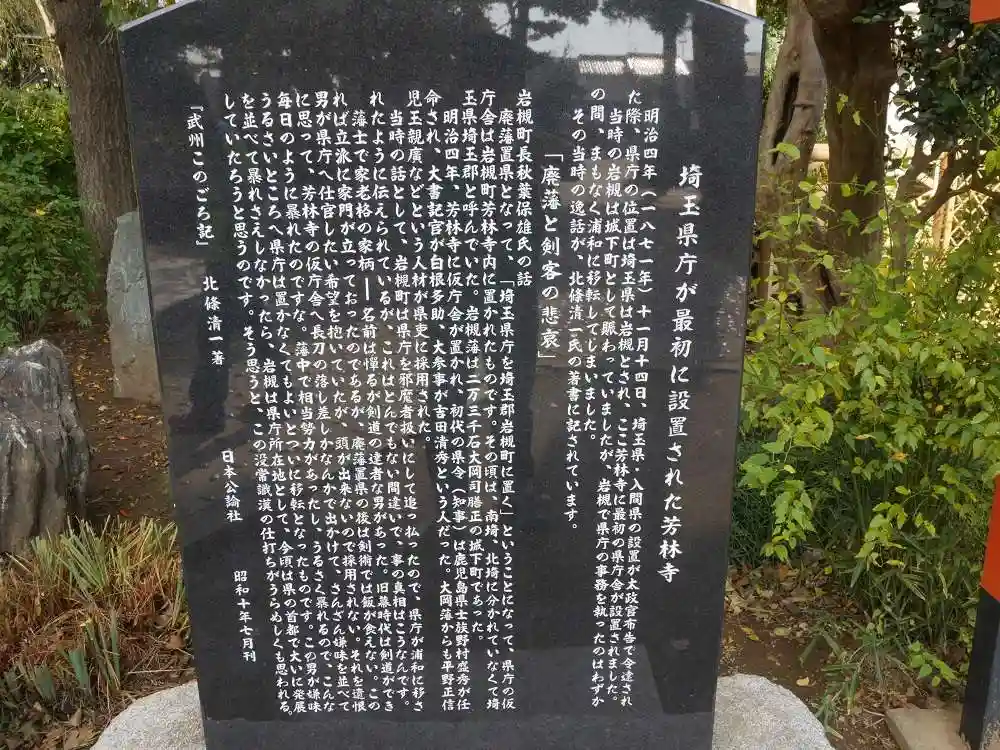 埼玉県庁が最初に設置された芳林寺
明治四年（一八七一年）十一月十四日、埼玉県・入間県の設置が太政官布告で令達され
た際、県庁の位置は埼玉県は岩槻とされ、ここ芳林寺に最初の県庁舎が設置されました。
当時の岩槻は城下町として賑わっていましたが、岩槻で県庁の事務を執ったのはわずか
の間、まもなく浦和に移転してしまいました。
その当時の逸話が、北條清一氏の著書に記されています。
「廃藩と剣客の悲哀」
岩槻町長秋葉保雄氏の話
廃藩置県となって、「埼玉県庁を埼玉郡岩槻町に置く」ということになって、県庁の仮
庁舎は岩槻町芳林寺内に置かれたものです。その頃は、南埼、北埼に分かれていなくて埼
玉県埼玉郡と呼んでいた。岩槻藩は二万三千石大岡司膳正の城下町であった。
明治四年、芳林寺に仮庁舎が置かれ、初代の県令（知事）は鹿児島県士族野村盛秀が任
命され、大書記官が白根多助、大参事が吉田清秀という人だった。大岡藩からも平野正信
児玉親廣などという人材が県吏に採用された。
当時の話として、岩槻町は県庁を邪魔者扱いにして追っ払ったので、県庁が浦和に移さ
れたように伝えられているが、これはとんでもない間違いで、事の真相はこうなんです。
藩士で家老格の家柄―名前は憚るが剣道の達者な男があった。旧幕時代は剣道ができ
れば立派に家門が立っておったのであるが、廃藩置県の後は剣術では飯が食えない。この
男が県庁へ仕官したい希望を抱いていたが、頭が出来ないので採用されない。それを遺恨
に思って、芳林寺の仮庁舎へ長刀の落し差しかなんかで出かけて、さんざん嫌味を並べて
毎日のように暴れたのですな。藩中で相当勢力があったし、うるさく暴れるので、こんな
うるさいところへ県庁は置かなくてもよいとついに移転となったものです。この男が嫌味
を並べて暴れさえしなかったら、岩槻は県庁所在地として、今頃は県の首都で大いに発展
していたろうと思うのです。そう思うと、この没常識漢の仕打ちがうらめしくも思われる。
「武州このごろ記」　北條清一著　日本公論社　昭和十年七月刊